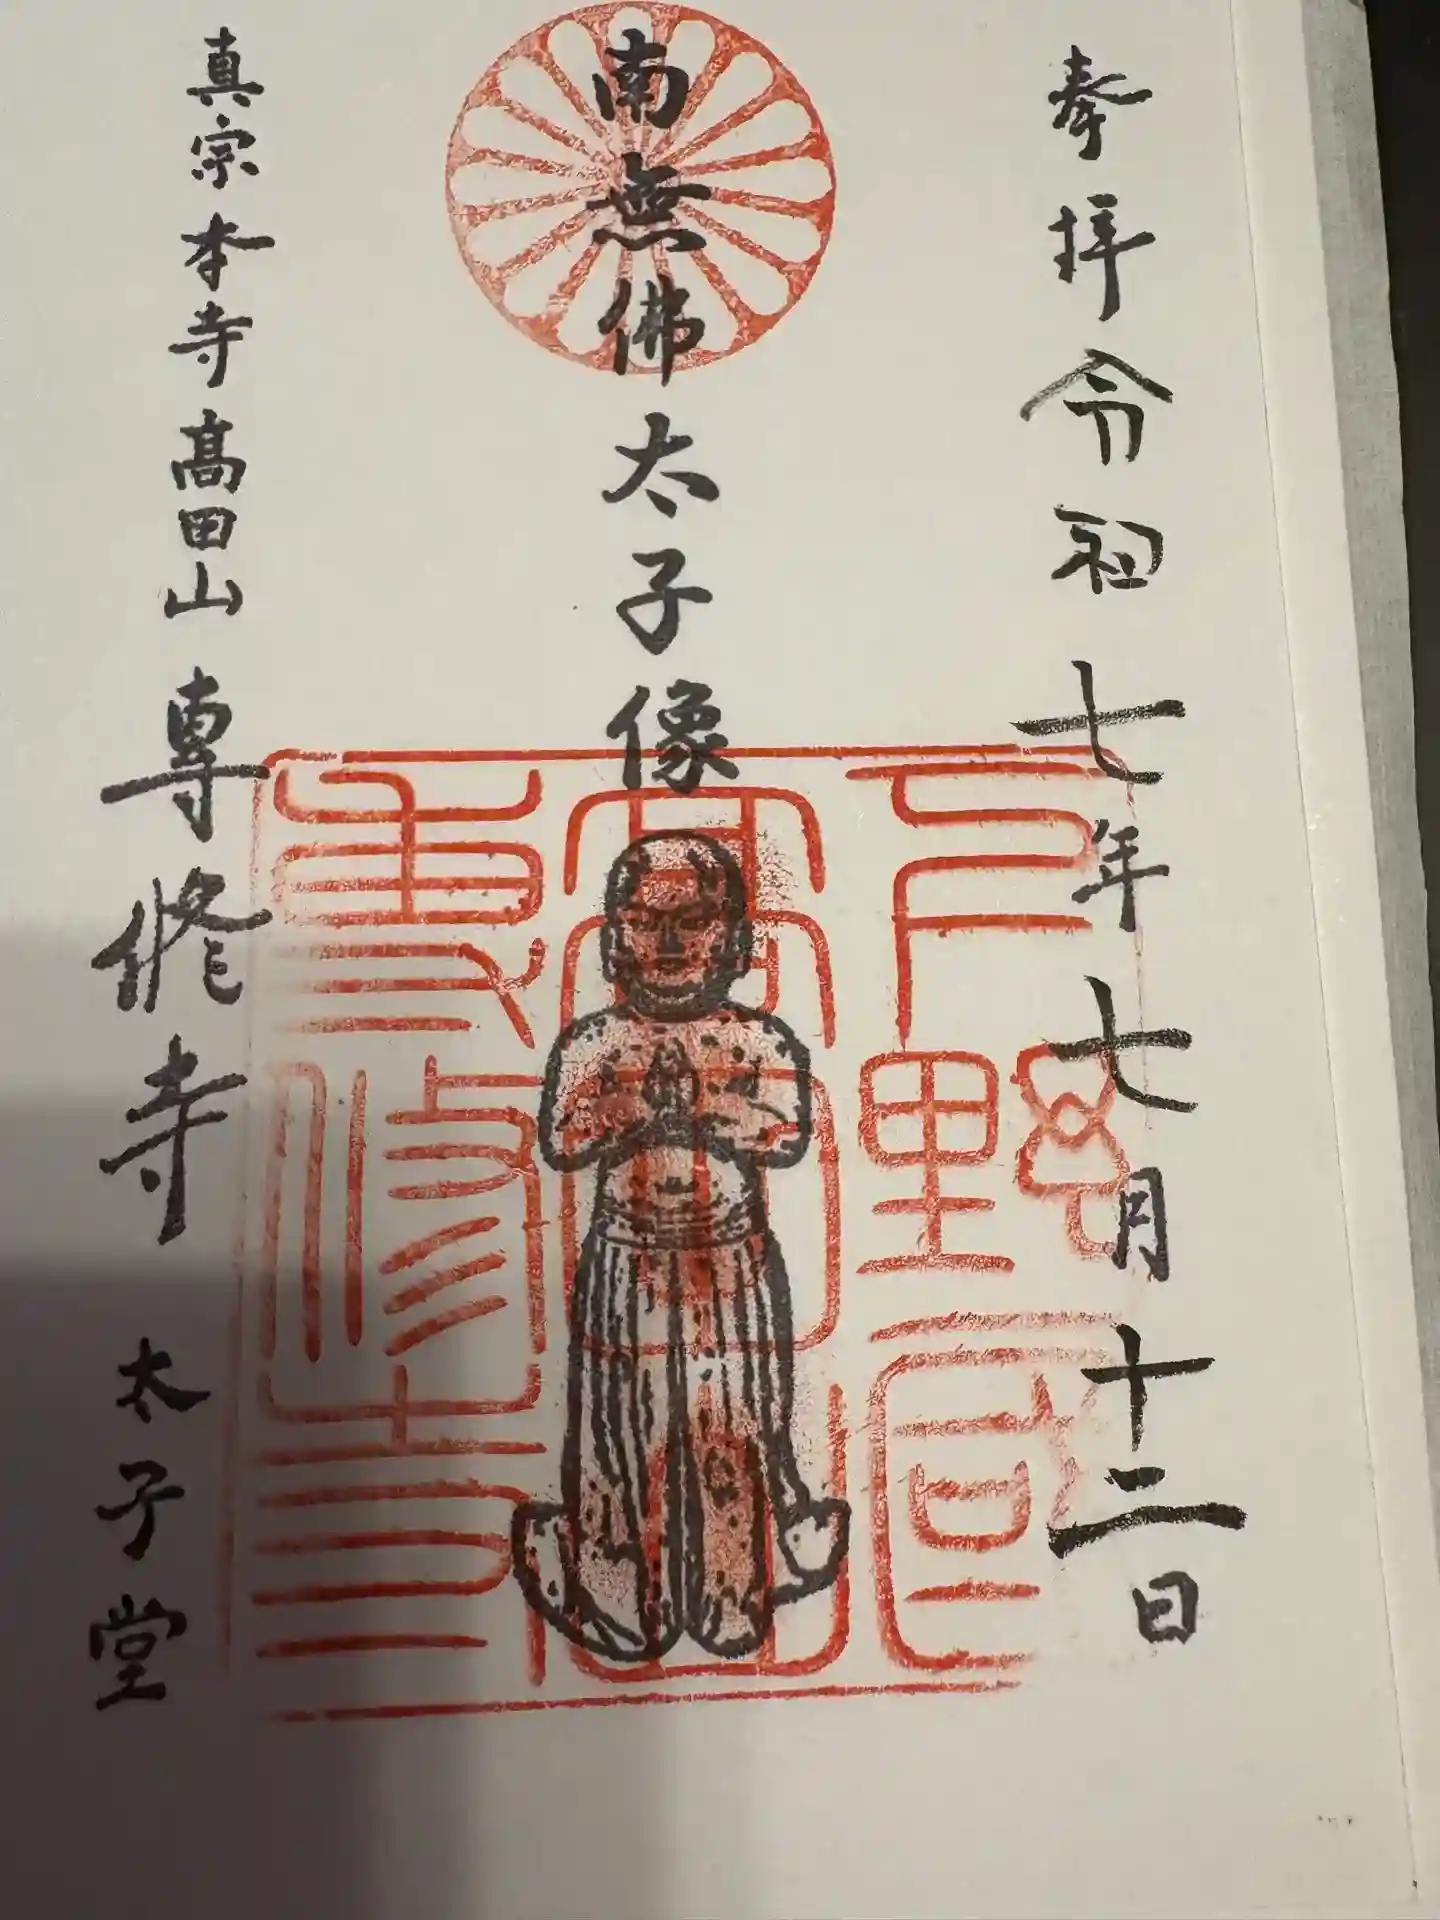 奉拝 令和七年七月十二日
南無佛太子像
真宗本寺高田山 専修寺 太子堂
下野国
高田山
専修寺